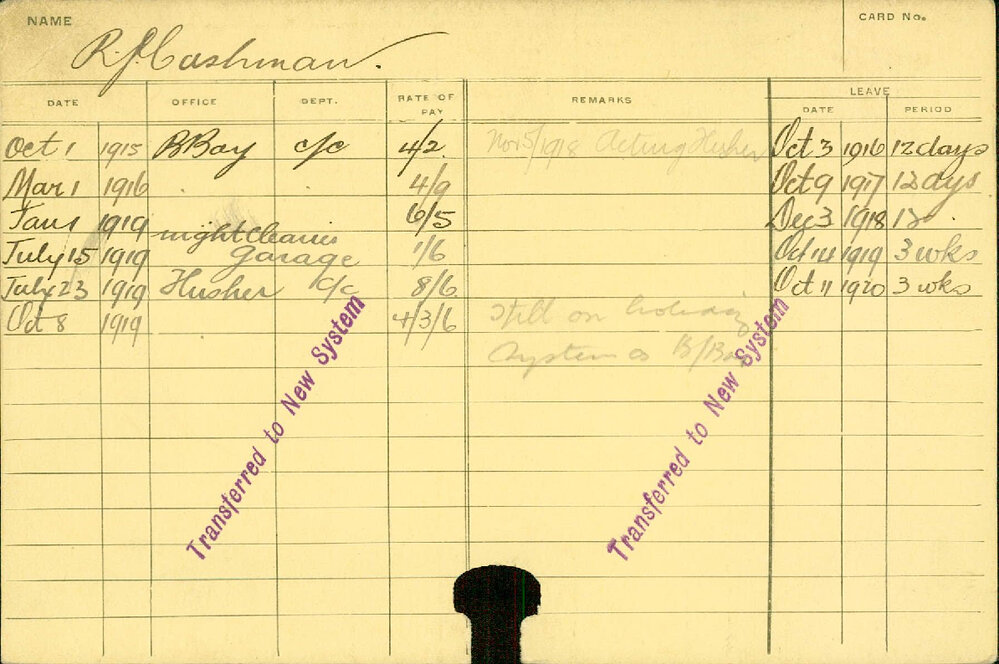 NAME
CARD No.
R. J. Cashman.
DATE OFFICE DEPT. RATE OF PAY REMARKS LEAVE
DATE PERIOD
Oct 1 1915 BBay c/c 4/2. Nov 5/1918 Acting Husher Oct 3 1916 12 days
Mar 1 1916 4/9 Oct 9 1917 12 days
Jan 1 1919 6/5 Dec 3 1918 12
July 15 1919 night cleaner Garage 1/6 Oct 14 1919 3 wks
July 23 1919 Husher c/c 8/6 Oct 11 1920 3 wks
Oct 8 1919 4/3/6 Still on holiday
System as B/Bay
Transferred to New System
Transferred to New System